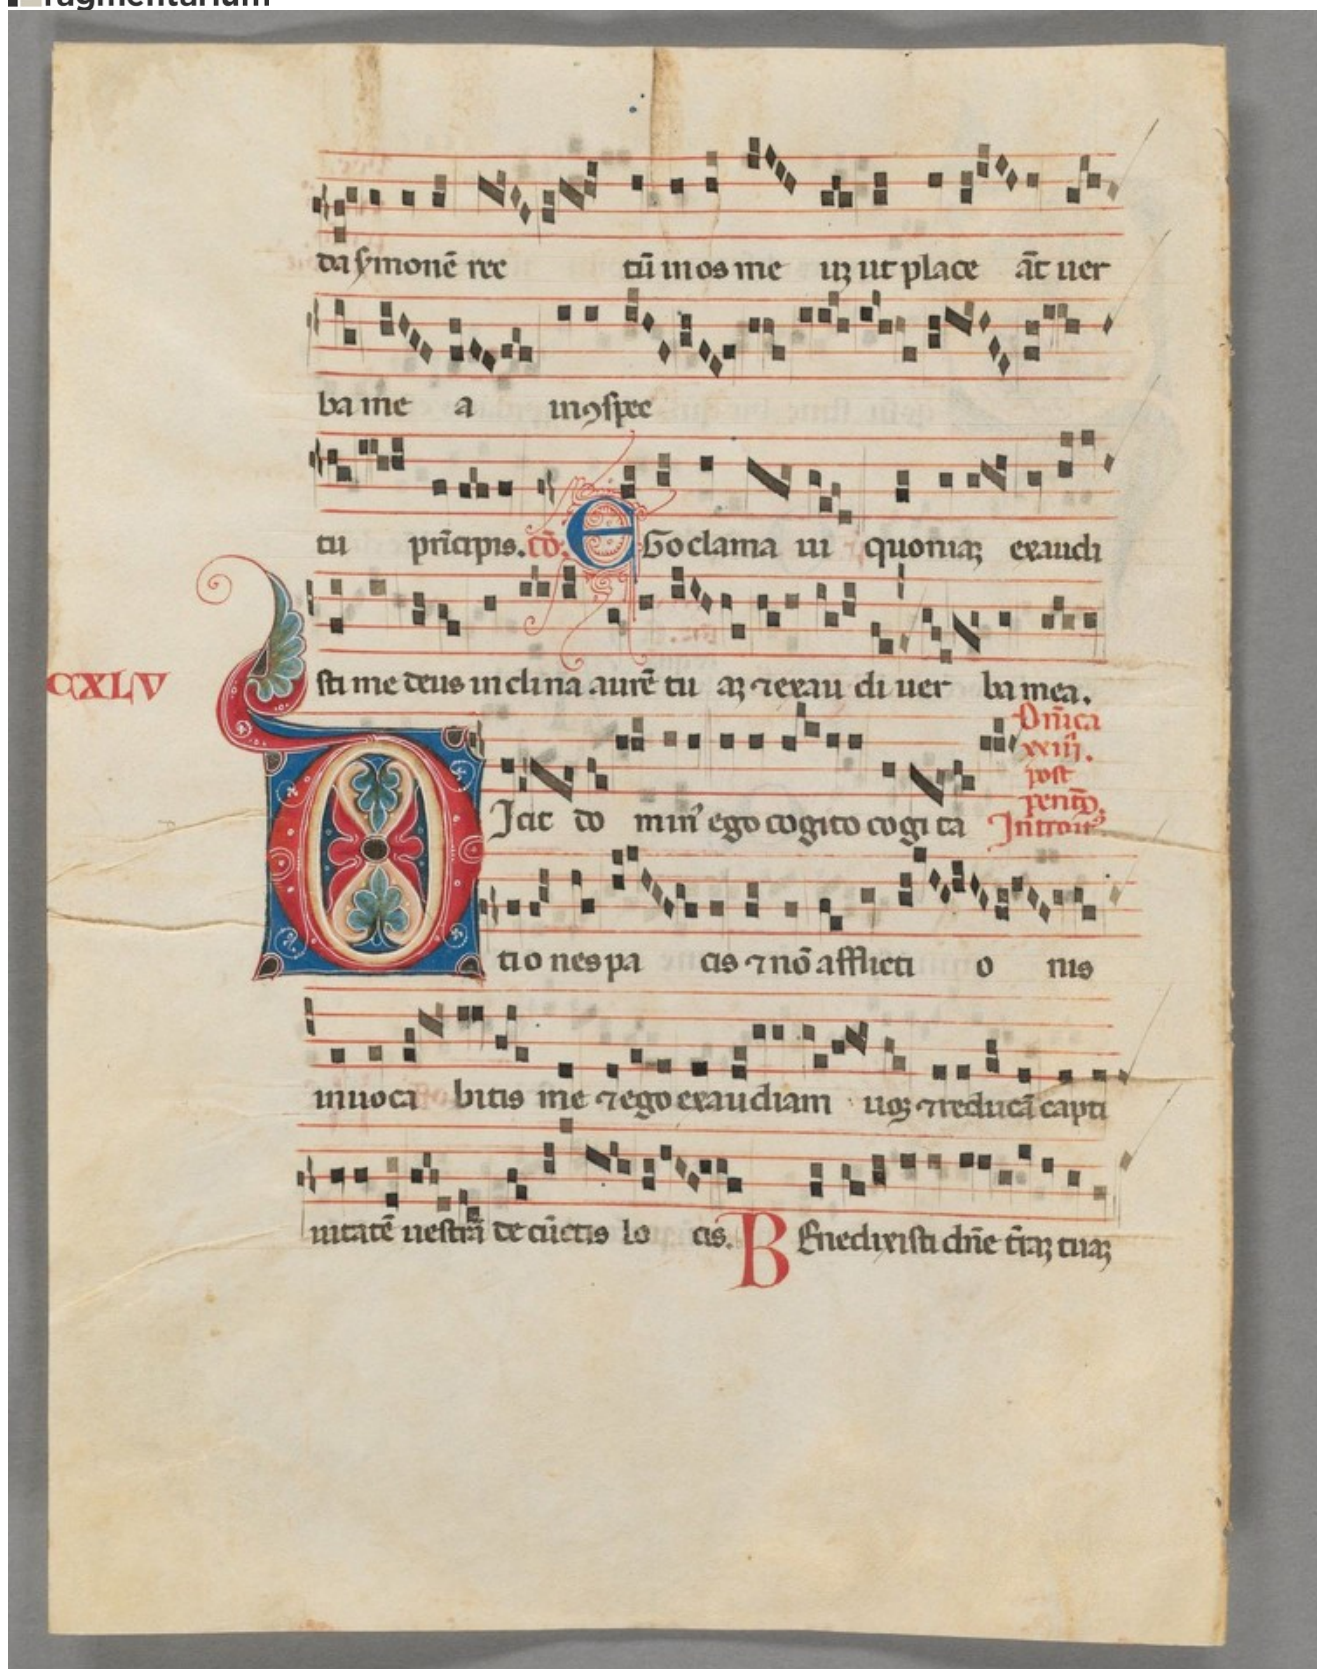 ragmentarium
da symonē rec tū in os me uꝫ ut place āt uer
ba me a in ꝯspec
tu prīcipis. cō. EGo clama ui quoniaꝫ exaudi
sti me deus inclina aurē tu aꝫ ⁊ exau di uer ba mea.
CXLV
Dn̄ica
xxiii.
post
pentec̄.
Introitꝰ
DIcit do min̄ ego cogito cogi ta
tio nes pa cis ⁊ nō afflicti o nis
inuoca bitis me ⁊ ego exaudiam uos ⁊ reducā capti
uitatē uestrā de cūctis lo cis. BEnedixisti dn̄e t̄raꝫ tuaꝫ